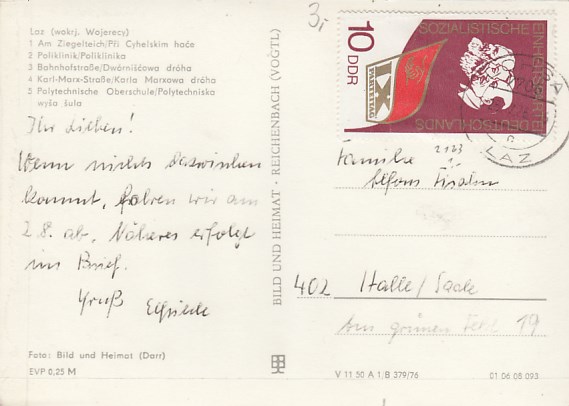 Laz (wokrj. Wojerecy)
1 Am Ziegelteich/Při Cyhelskim haće
2 Poliklinik/Poliklinika
3 Bahnhofstraße/Dwórnišćowa dróha
4 Karl-Marx-Straße/Karla Marxowa dróha
5 Polytechnische Oberschule/Polytechniska
wyša šula
Ihr Lieben!
Wenn nichts dazwischen
kommt, fahren wir am
28. ab. Näheres erfolgt
im Brief.
Gruß Elfriede
Foto: Bild und Heimat (Darr)
EVP 0,25 M
BILD UND HEIMAT · REICHENBACH (VOGTL)
SOZIALISTISCHE
EINHEITSPARTEI
DEUTSCHLANDS
10 DDR
IX.
PARTEITAG
LAZ
Familie
Alfons
402 Halle/Saale
Am grünen Feld 19
V 11 50 A 1/B 379/76
01 06 08 093